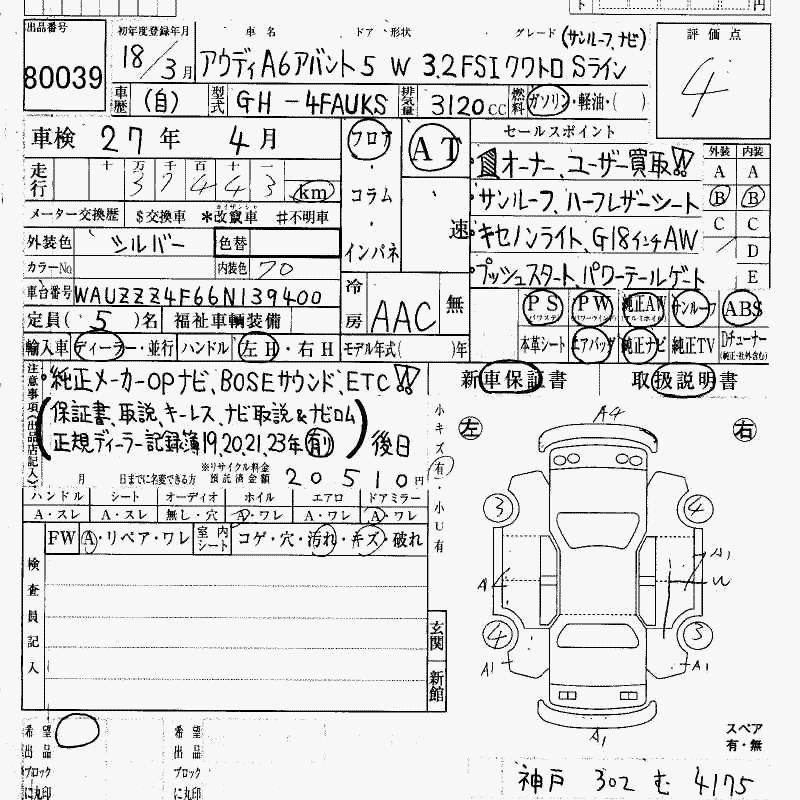 出品番号 初年度登録年月 車名 ドア 形状 グレード (サンルーフ,ナビ) 評価点
80039 18/3月 アウディA6アバント 5 W 3.2FSIクワトロ Sライン 4
車歴 (自) 型式 GH-4FAUKS 排気量 3120CC 燃料 ガソリン・軽油・( )
車検 27年 4月 フロア AT セールスポイント
走行 十 万 千 百 十 一 1オーナー、ユーザー買取!! 外装 内装
37443 km ・コラム サンルーフ、ハーフレザーシート A A
B B
メーター交換歴 $交換車 *改竄車 #不明車 速 キセノンライト、G18インチAW C C
外装色 シルバー 色替 ・インパネ D
カラーNo 内装色 70 プッシュスタート、パワーテールゲート E
車台番号 WAUZZZ4F66N139400 冷房 AAC 無 PS パワステ PW パワーウインド 純正AW アルミホイル サンルーフ ABS
定員(5)名 福祉車輌装備 本革シート エアバッグ 純正ナビ 純正TV Dチューナー (純正・社外含む)
輸入車 ディーラー・並行 ハンドル 左H・右H モデル年式( )年
注意事項(出品店記入) 純正メーカーOPナビ、BOSEサウンド、ETC!! 新車保証書 取扱説明書
(保証書、取説、キーレス、ナビ取説&ナビロム
正規ディーラー記録簿19,20,21,23年有) 後日
月 日までに名変できる方 ※リサイクル料金預託済金額 20510円
小キズ有・小U有
ハンドル シート オーディオ ホイル エアロ ドアミラー
A・スレ A・スレ 無し・穴 A・ワレ A・ワレ A・ワレ
FW A・リペア・ワレ 室内シート コゲ・穴・汚れ・キズ・破れ
検査員記入
左 A4 右
3 4
A1
A4 W
4 3
A1 A1
A1
玄関 新館
スペア
有・無
希望出品ブロックに丸印 希望出品ブロックに丸印
神戸 302 む 4175